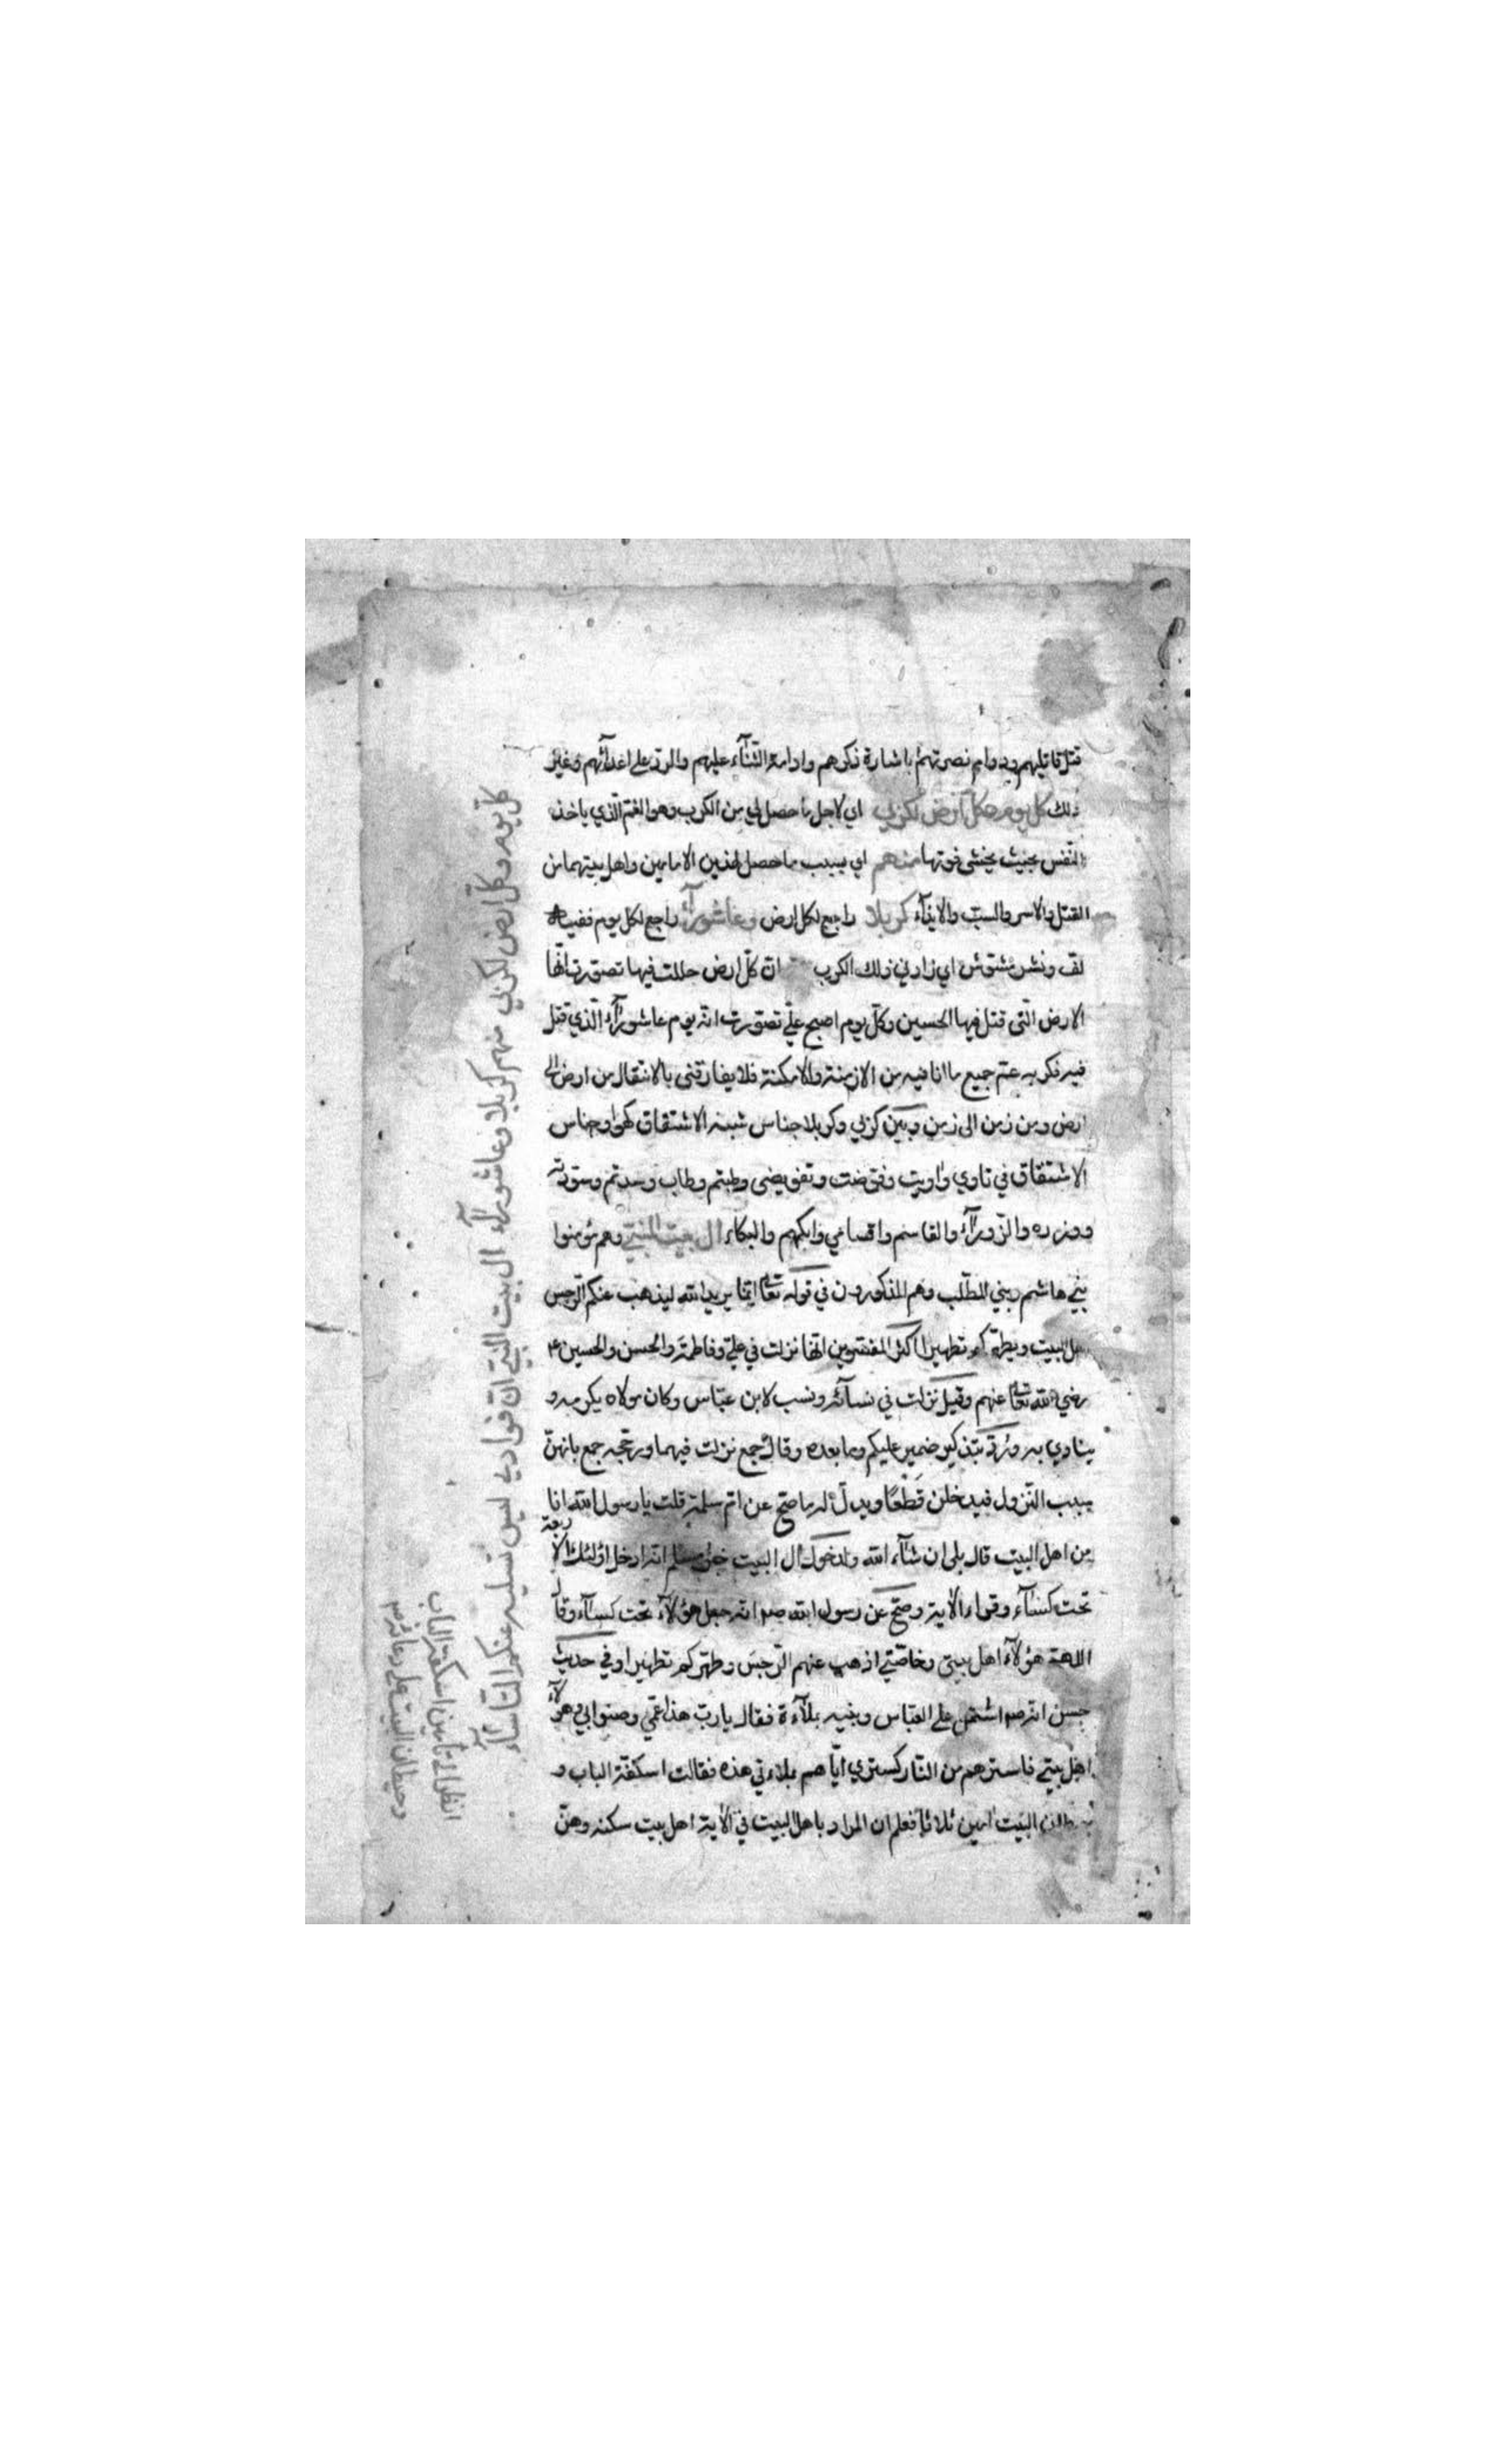 قتل قاتليهم ودوام نصرتهم باشارة ذكرهم وادامة الثنآء عليهم والرد على اعدآئهم وغير
ذلك كل يوم وكل أرض لكربي اي لاجل ما حصل لي من الكرب وهو الغم الذي ياخذ
النفس بحيث يخشى فوتها منهم اي بسبب ما حصل لهذين الامامين واهل بيتهما من
القتل والاسر والسب والايذآء كربلا راجع لكل ارض وعاشورآء راجع لكل يوم ففيه
لف ونشر مشوش اي زاد بي ذلك الكرب ان كل ارض حللت فيها تصورت انها
الارض التي قتل فيها الحسين وكل يوم اصبح علي تصورت انه يوم عاشورآء الذي قتل
فيه فكربه عم جميع ما انا فيه من الازمنة والامكنة فلا يفارقني بالانتقال من ارض الى
ارض ومن زمن الى زمن وبين كربي وكربلا جناس شبه الاشتقاق كهو وجناس
الاشتقاق في تاوي واويت وفوضت وتفويضي وطبتم وطاب وسدتم وسودته
ووزره والزورآء والقاسم واقصاهي وابكهم والبكاء ال بيت النبي وهم مؤمنوا
بني هاشم وبني المطلب وهم المذكورون في قوله تعالى انما يريد الله ليذهب عنكم الرجس
اهل البيت ويطهركم تطهيرا اكثر المفسرين انها نزلت في علي وفاطمة والحسن والحسين
رضي الله تعالى عنهم وقيل نزلت في نسآئه ونسب لابن عباس وكان مولاه يكرمه و
ينادي به ورد بتذكير ضمير عليكم وما بعده وقال جمع نزلت فيهما ورجحه جمع بانهن
سبب النزول فيدخلن قطعا ويدل له ما صح عن ام سلمة قلت يا رسول الله انا
من اهل البيت قال بلى ان شآء الله ولدخول ال البيت خبر مسلم انه ادخل اولئك الاربعة
تحت كسآء وقراء الاية وصح عن رسول الله صم انه جعل هؤلآء تحت كسآء وقال
اللهم هؤلآء اهل بيتي وخاصتي اذهب عنهم الرجس وطهركم تطهيرا وفي حديث
حسن انه صم اشتمل على العباس وبنيه بملآءة فقال يارب هذا عمي وصنوابي وهؤلآء
اهل بيتي فاسترهم من النار كستري اياهم بملاءتي هذه فقالت اسكفة الباب و
حيطان البيت امين ثلاثا فعلم ان المراد باهل البيت في الاية اهل بيت سكنه وهن
كل يوم وكل ارض لكربي منهم كربلا وعاشورآء ال بيت النبي ان فوادي ليس تسليه عنكم التأسآء
انظر الى تأمين اسكفة الباب
وحيطان البيت على دعائه صم